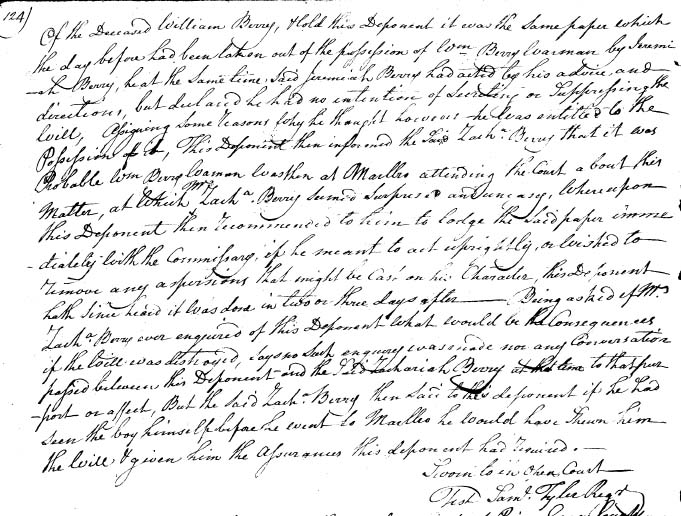 124)
Of the Deceased William Berry, & told this Deponent it was the same paper which
the day before had been taken out of the possession of Wm Berry Warman by Jeremi
-ah Berry, he at the same time said Jeremiah Berry had acted by his advice, and
directions, but declared he had no intention of Secreting or Suppressing the
Will, Assigning Some Reasons why he thought however he was entitled to the
Possession of it, This Deponent then informed the Said Zacha. Berry that it was
Probable Wm Berry Warman was then at Marlbro attending the Court about this
Matter, at which Mr. Zacha. Berry Seemed Surprised and uneasy, Whereupon
this Deponent then recommended to him to lodge the Said paper imme
-diately with the Commissary, if he meant to act uprightly, or wished to
remove any aspersions that might be Cast on his Character, this Deponent
hath Since heard it was done in two or three days after — Being asked if Mr.
Zacha. Berry ever enquired of this Deponent what would be the Consequences
if the Will was destroyed, Says no Such enquiry was made nor any Conversation
passed between this Deponent and the Said Zachariah Berry at this time to that pur
-port or affect, But the said Zacha. Berry then Said to this deponent if he had
seen the boy himself before he went to Marlbro he would have Shewn him
the Will & given him the Assurances this deponent had required. —
Sworn to in Open Court
Test Saml. Tyler Regr